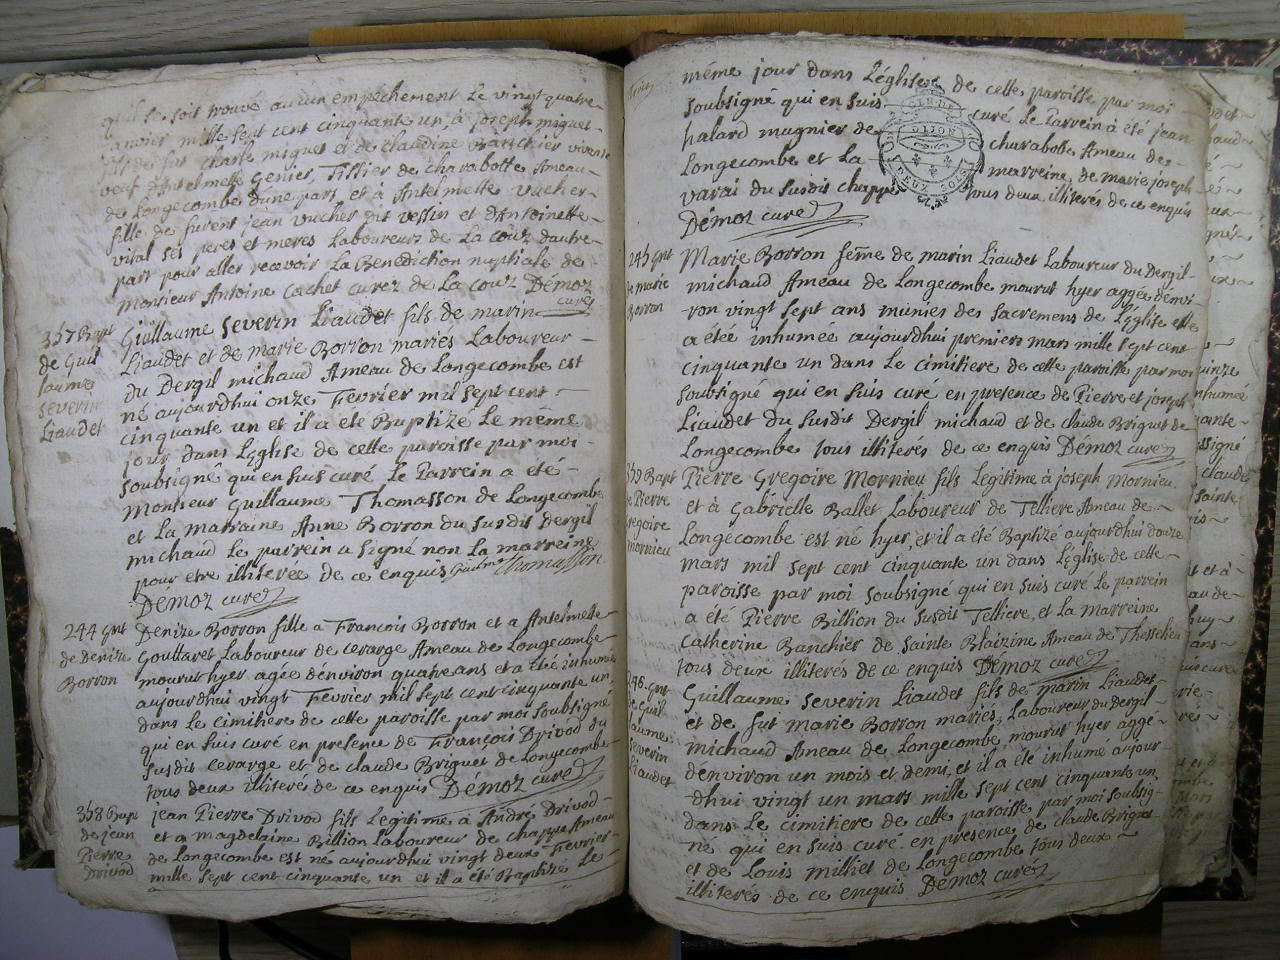 qu'il se soit trouvé aucun empechement Le vingt quatre
janvier mille sept cent cinquante un, à joseph miguet
fils de fut charle miguet et de claudine Banchier vivante
veuf d'Antelmette Genier, Tillier de charabotte Ameau
de Longecombe d'une part et à Antelmette vucher
fille de furent jean vucher dit vessin et d'Antoinette
vital ses peres et meres Laboureurs de La couz d'autre
part pour aller recevoir La Benediction nuptiale de
Monsieur Antoine Cochet curez de La couz Démoz
curé
357 Bapt
de Guil
laume
severin
Liaudet
Guillaume Severin Liaudet fils de marin
Liaudet et de marie Borron mariés Laboureur
du Dergil michaud Ameau de Longecombe est
né aujourdhui onze Fevrier mil sept cent
cinquante un et il a été Baptizé Le même
jour dans L'église de cette paroisse par moi
soubsigné qui en suis curé Le Parrein a été
Monsieur Guillaume Thomasson de Longecombe
et La Marraine Anne Borron du susdit dergil
michaud Le parrein a signé non La marreine
pour etre illiterée de ce enquis Guilme Thomasson
Démoz curé
244 Ent
de Denize
Borron
Denize Borron fille a François Borron et a Antelmette
Gouttaret Laboureur de cerarge Ameau de Longecombe
mourut hyer agée d'environ quatre ans et a été inhumée
aujourdhui vingt Fevrier mil sept cent cinquante un
dans Le cimitiere de cette paroisse par moi soubsigné
qui en suis curé en presence de François Drivod du
susdit cerarge et de claude Briguet de Longecombe
tous deux illiterés de ce enquis Démoz curé
358 Bapt
de jean
Pierre
Drivod
jean Pierre Drivod fils Legitime à André Drivod
et a magdelaine Billion Laboureur de chappe Ameau
de Longecombe est né aujourdhui vingt deux Fevrier
mille sept cent cinquante un et il a été Baptizé Le
même jour dans L'église de cette paroisse par moi
soubsigné qui en suis curé Le Parrein à été jean
halard mugnier de charabote Ameau de
Longecombe et La marreine de marie joseph
varai du susdit chappe tous deux illiterés de ce enquis
Démoz curé
GEN DE
DIJON
DEUX SOLS
245 Ent
de marie
Borron
Marie Borron feme de marin Liaudet Laboureur du Dergil
michaud Ameau de Longecombe mourut hyer aggée d'envi
ron vingt sept ans munies des sacremens de L'église elle
a été inhumée aujourdhui premiers mars mille sept cent
cinquante un dans Le cimitiere de cette paroisse par moi
soubsigné qui en suis curé en presence de Pierre et joseph
Liaudet du susdit Dergil michaud et de claude Briguet de
Longecombe tous illiterés de ce enquis Démoz curé
359 Bapt
de Pierre
Gregoire
mornieu
Pierre Gregoire Mornieu fils Légitime à joseph Mornieu
et à Gabrielle Ballet Laboureur de Telliere Ameau de
Longecombe est né hyer, et il a été Baptizé aujourdhui douze
mars mil sept cent cinquante un dans L'église de cette
paroisse par moi soubsigné qui en suis curé Le parrein
a été Pierre Billion du susdit Telliere, et La marreine
Catherine Banchier de Sainte Blaizine Ameau de Thesselieu
tous deux illiterés de ce enquis Démoz curé
246 Ent
de Guil
laume
severin
Liaudet
Guillaume Severin Liaudet fils de marin Liaudet
et de fut marie Borron mariés, Laboureur du Dergil
michaud Ameau de Longecombe, mourut hyer aggé
d'environ un mois et demi, et il a été inhumé aujour
dhui vingt un mars mille sept cent cinquante un
dans Le cimitiere de cette paroisse par moi soubsig
né qui en suis curé en presence de claude Briguet
et de Louis milliet de Longecombe tous deux
illiterés de ce enquis Démoz curé